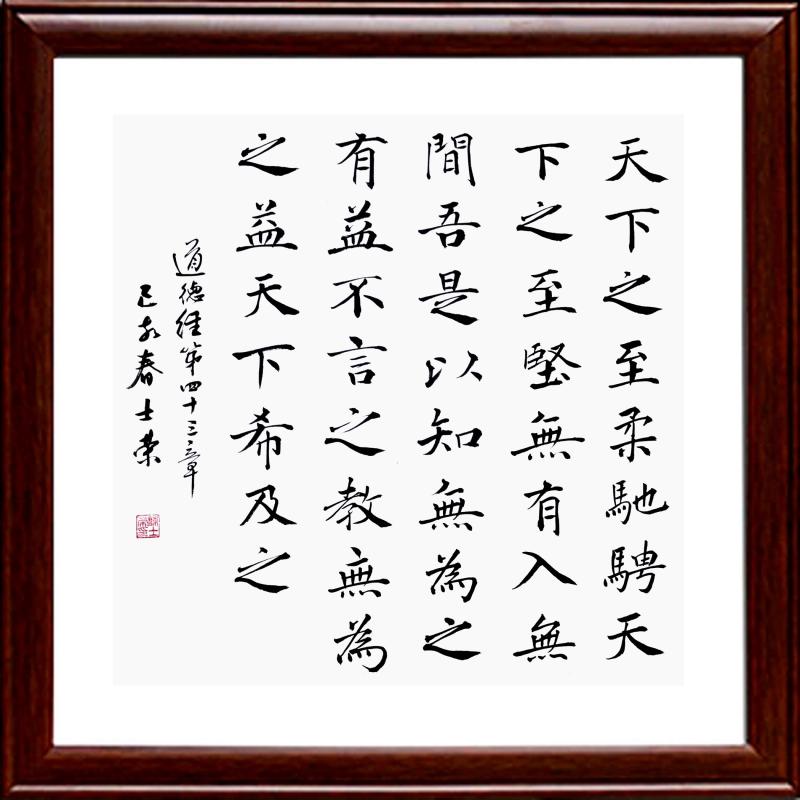 天下之至柔馳騁天
下之至堅無有入無
間吾是以知無為之
有益不言之教無為
之益天下希及之
道德經第四十三章
己亥春士榮